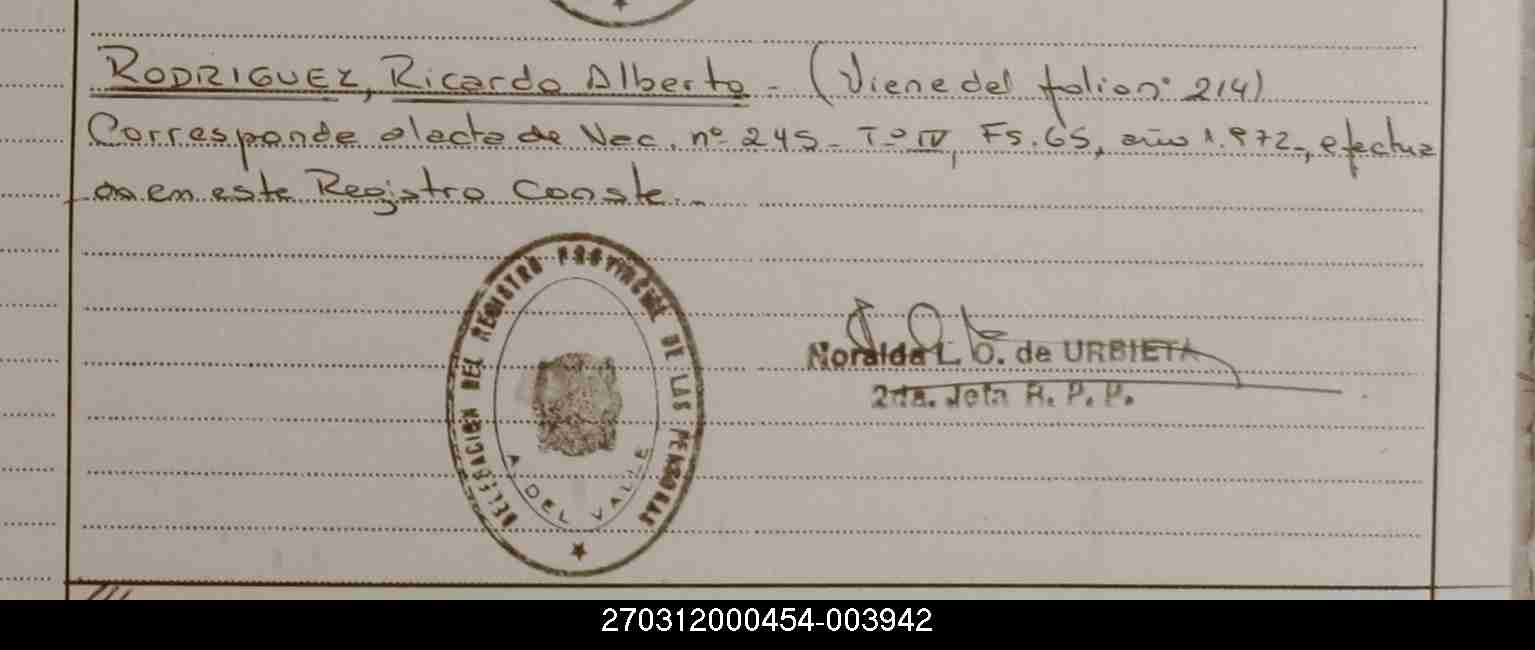 RODRIGUEZ, Ricardo Alberto - (Viene del folio nº 214)
Corresponde al acta de Nac. nº 245 - Tº IV, Fs. 65, año 1.972-, efectua
da en este Registro Conste.-
DELEGACION DEL REGISTRO PROVINCIAL DE LAS PERSONAS
A DEL VALLE
Noralda L. O. de URBIETA
2da. Jefa R. P. P.
270312000454-003942